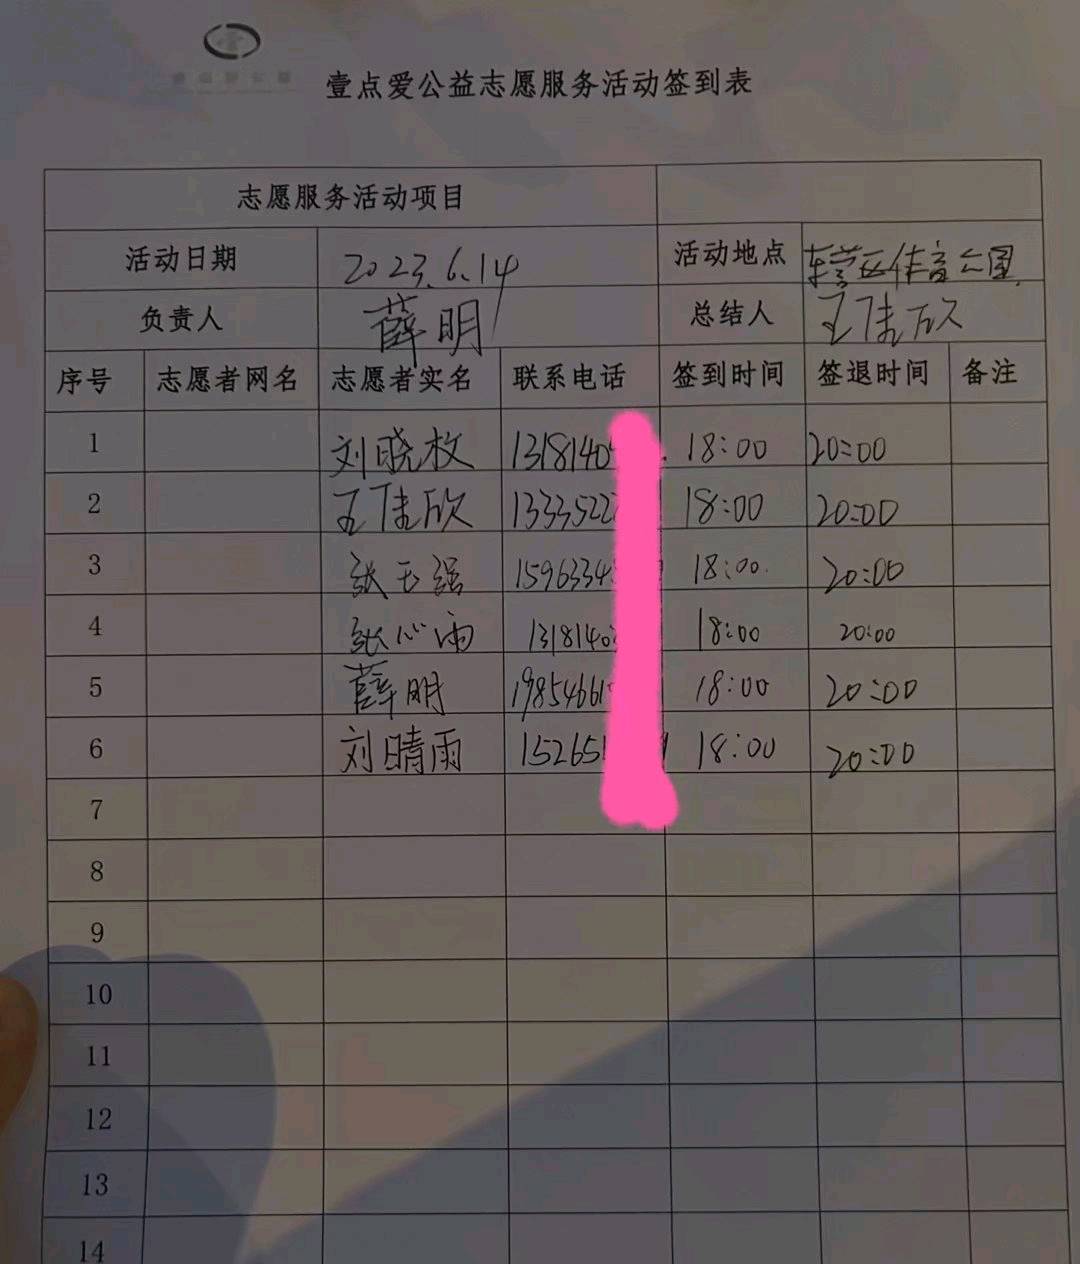 壹点爱公益志愿服务活动签到表
志愿服务活动项目
活动日期 2023.6.14 活动地点 东营区体育公园
负责人 薛明 总结人 王佳欣
序号 志愿者网名 志愿者实名 联系电话 签到时间 签退时间 备注
1 刘晓枚 1318140 18:00 20:00
2 王佳欣 1333522 18:00 20:00
3 张玉强 1596334 18:00 20:00
4 张心雨 131814 18:00 20:00
5 薛明 19854661 18:00 20:00
6 刘晴雨 15265 18:00 20:00
7
8
9
10
11
12
13
14